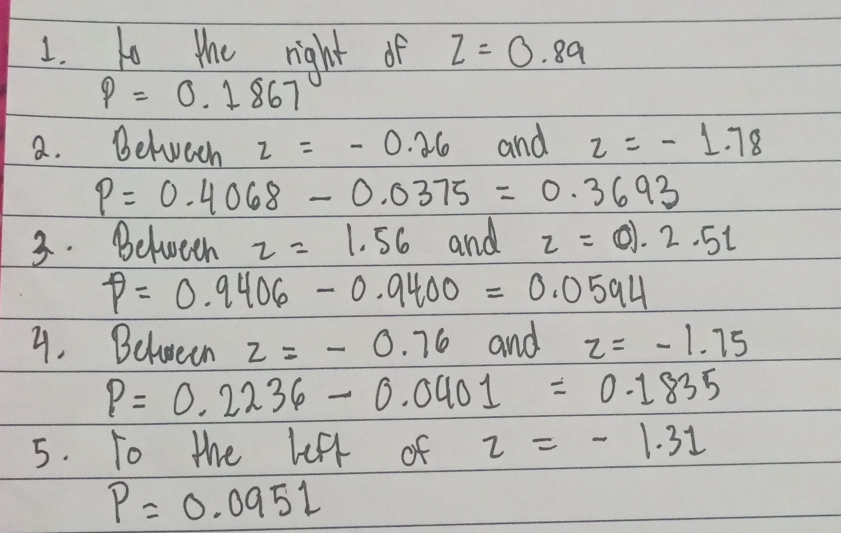 1. to the right of Z = 0.89
P = 0.1867
2. Between z = - 0.26 and z = - 1.78
P = 0.4068 - 0.0375 = 0.3693
3. Between z = 1.56 and z = 2.51
P = 0.9406 - 0.9400 = 0.0594
4. Between z = - 0.76 and z = - 1.75
P = 0.2236 - 0.0401 = 0.1835
5. To the left of z = - 1.31
P = 0.0951